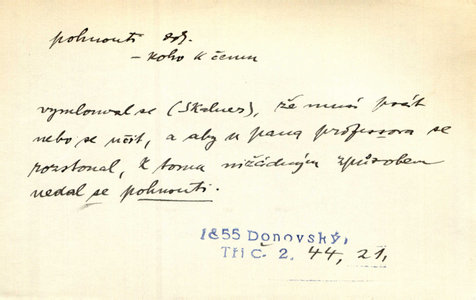 pohnouti
– koho k čemu
vymlouval se (Skalner), že musí psát
nebo se učit, a aby u pana professora se
rozstonal, k tomu nižádným způsobem
nedal se pohnouti.
1855 Donovský,
Tři Č. 2. 44, 21,